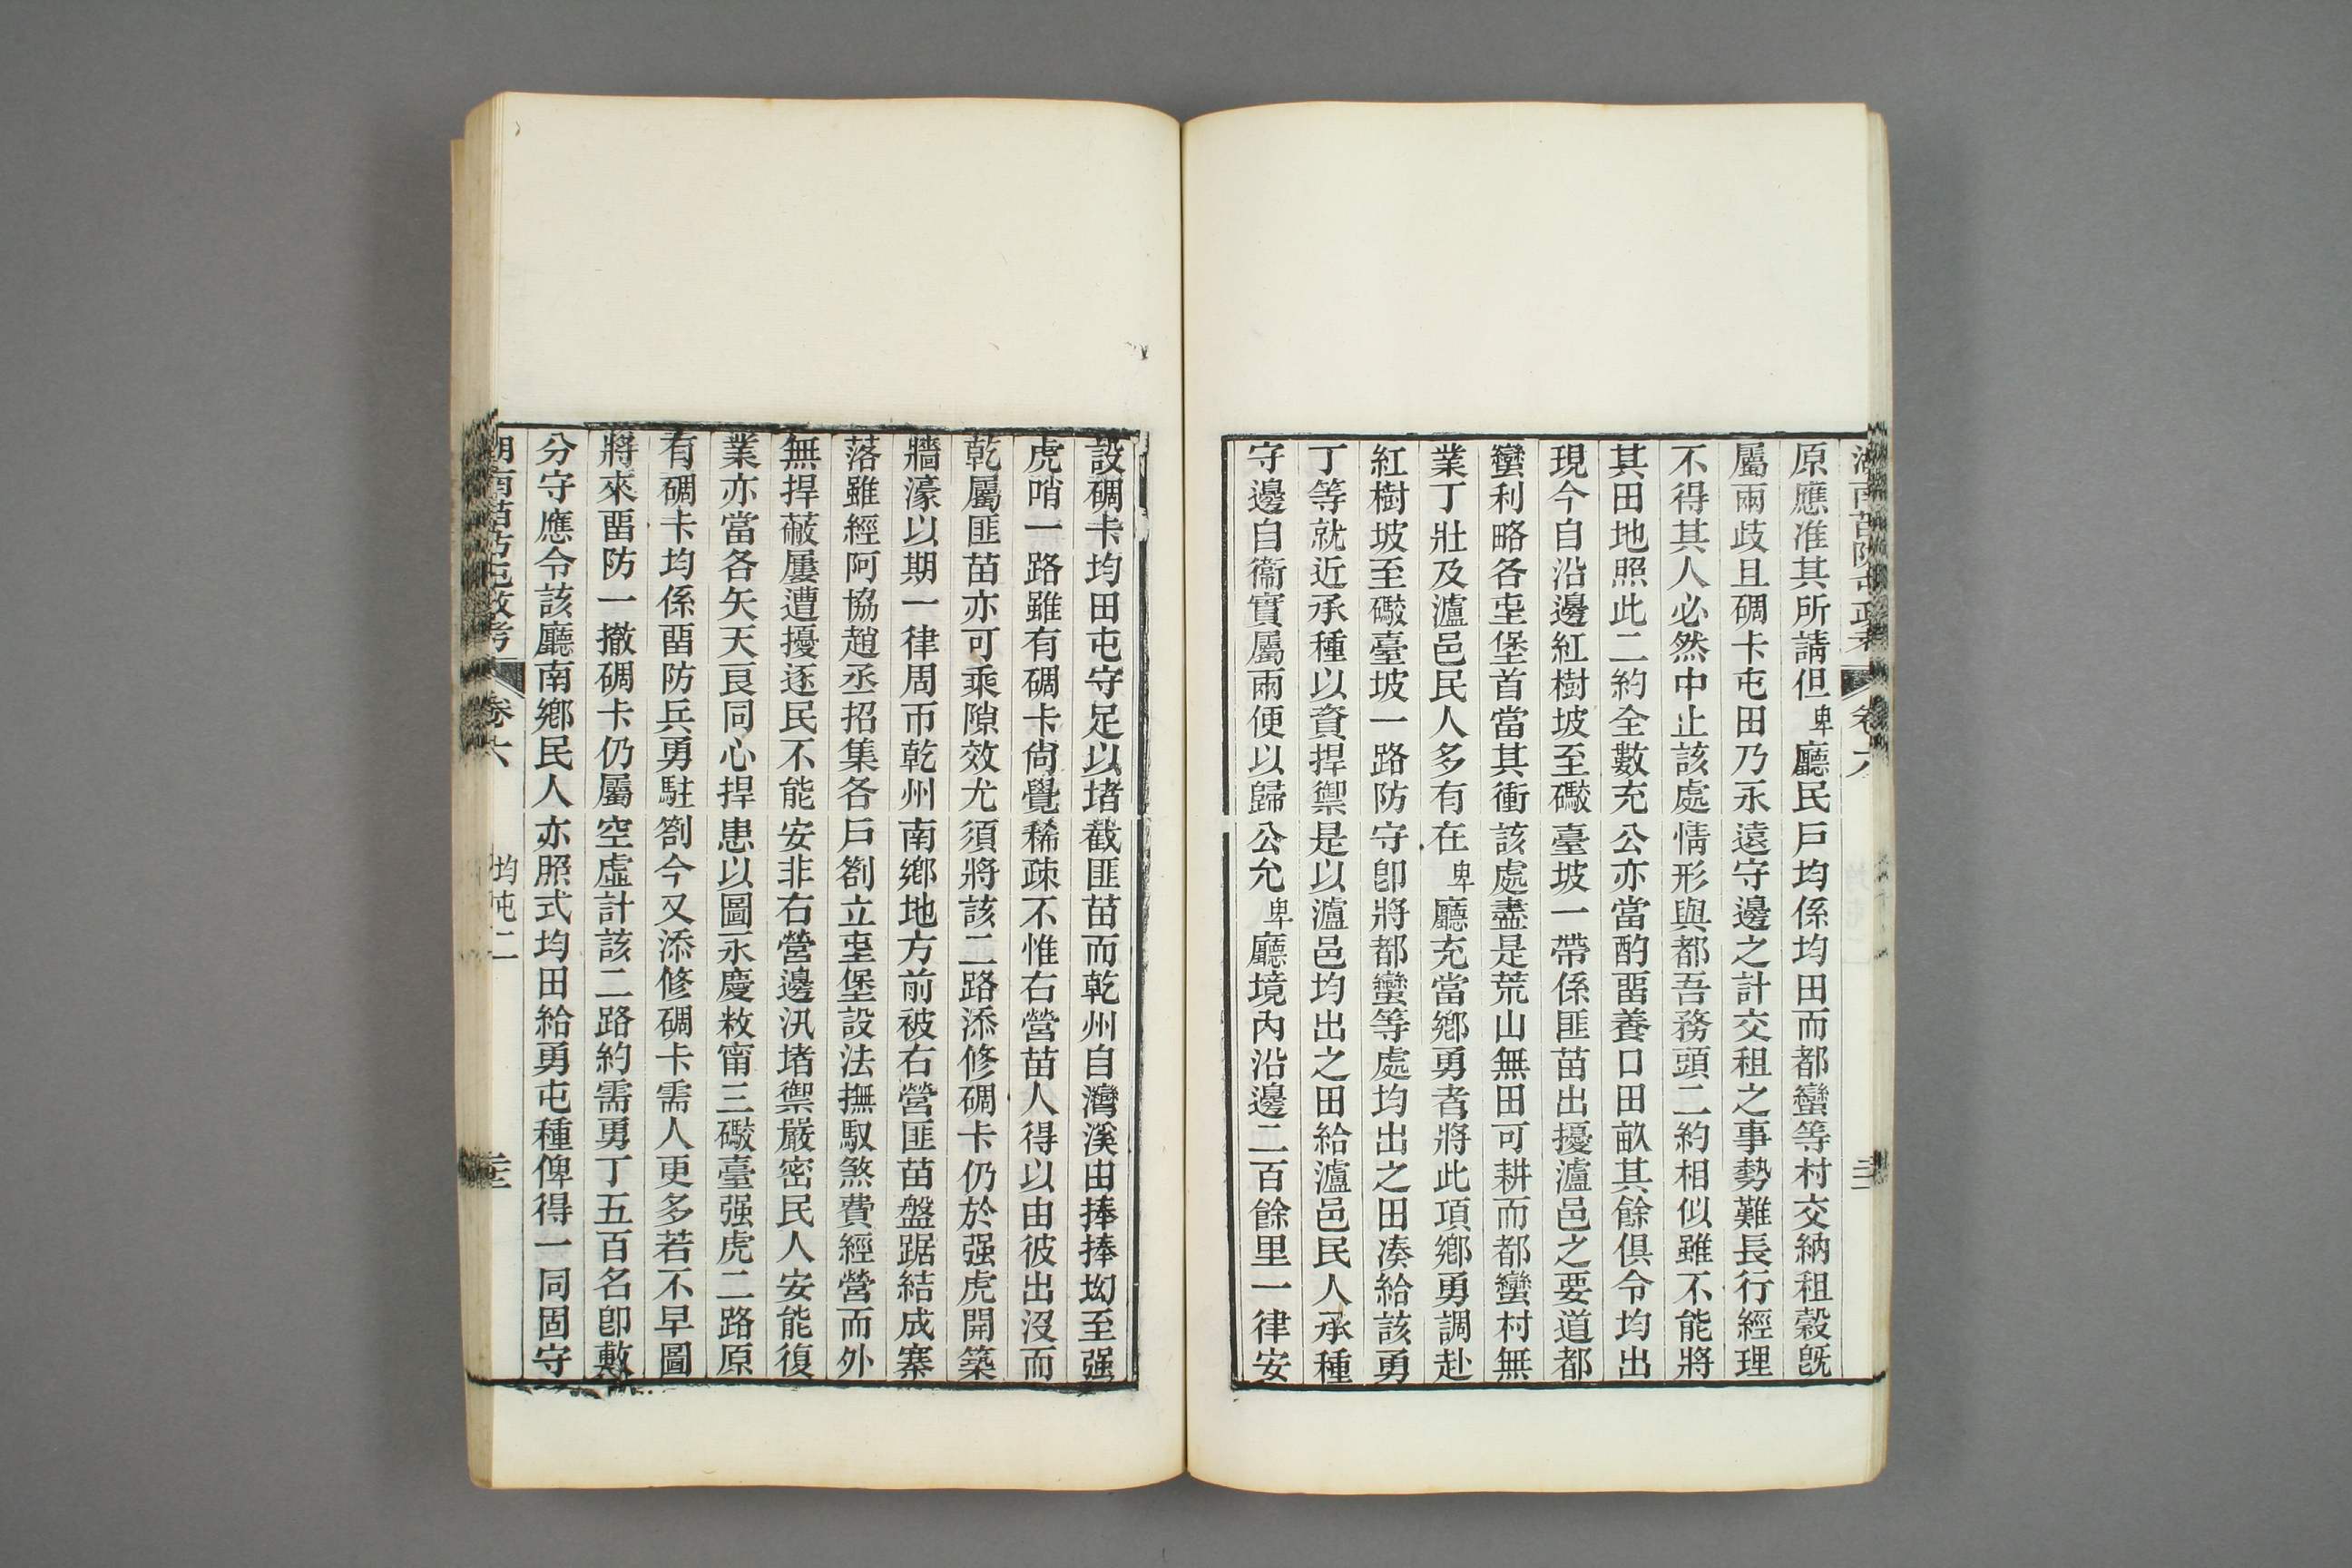 原應准其所請但卑廳民戶均係均田而都蠻等村交納租穀既
屬兩歧且碉卡屯田乃永遠守邊之計交租之事勢難長行經理
不得其人必然中止該處情形與都吾務頭二約相似雖不能將
其田地照此二約全數充公亦當酌畱養口田畝其餘俱令均出
現今自沿邊紅樹坡至礮臺坡一帶係匪苗出擾瀘邑之要道都
蠻利略各屯堡首當其衝該處盡是荒山無田可耕而都蠻村無
業丁壯及瀘邑民人多有在卑廳充當鄉勇者將此項鄉勇調赴
紅樹坡至礮臺坡一路防守卽將都蠻等處均出之田湊給該勇
丁等就近承種以資捍禦是以瀘邑均出之田給瀘邑民人承種
守邊自衞實屬兩便以歸公允卑廳境內沿邊二百餘里一律安
設碉卡均田屯守足以堵截匪苗而乾州自灣溪由捧捧坳至强
虎哨一路雖有碉卡尙覺稀疎不惟右營苗人得以由彼出沒而
乾屬匪苗亦可乘隙效尤須將該二路添修碉卡仍於强虎開築
牆濠以期一律周帀乾州南鄉地方前被右營匪苗盤踞結成寨
落雖經阿協趙丞招集各戶劄立屯堡設法撫馭煞費經營而外
無捍蔽屢遭擾逐民不能安非右營邊汛堵禦嚴密民人安能復
業亦當各矢天良同心捍患以圖永慶敉甯三礮臺强虎二路原
有碉卡均係畱防兵勇駐劄今又添修碉卡需人更多若不早圖
將來畱防一撤碉卡仍屬空虛計該二路約需勇丁五百名卽敷
分守應令該廳南鄉民人亦照式均田給勇屯種俾得一同固守
湖南苗防屯政考 卷六 均屯二